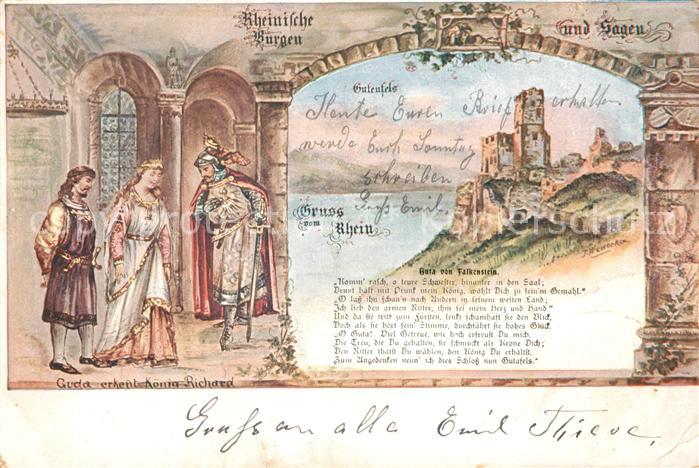 Rheinische
Burgen
und Sagen
Gutenfels
Heute Euren Brief erhalten
werde Euch Sonntag
schreiben
Gruß Emil.
Gruss
vom
Rhein
Guta von Falkenstein.
"Komm' rasch, o teure Schwester, hinunter in den Saal;
Dennt hält mit Prunk mein König, wählt Dich zu sein'm Gemahl."
"O laß ihn schau'n nach Andern in seinem weiten Land;
Ich lieb den armen Ritter, ihm sei mein Herz und Hand."
Und da sie tritt zum Fürsten, senkt schamhaft sie den Blick,
Doch als sie hört sein' Stimme, durchfährt sie hohes Glück.
"O Guta! Viel Getreue, wie hoch erfreust Du mich.
Die Treu, die Du gehalten, sie schmückt als Krone Dich;
Den Ritter thatst Du wählen, den König Du erhältst,
Zum Angedenken nenn' ich dies Schloß nun Gutafels."
Guda erkent König Richard
Gruss an alle Emil